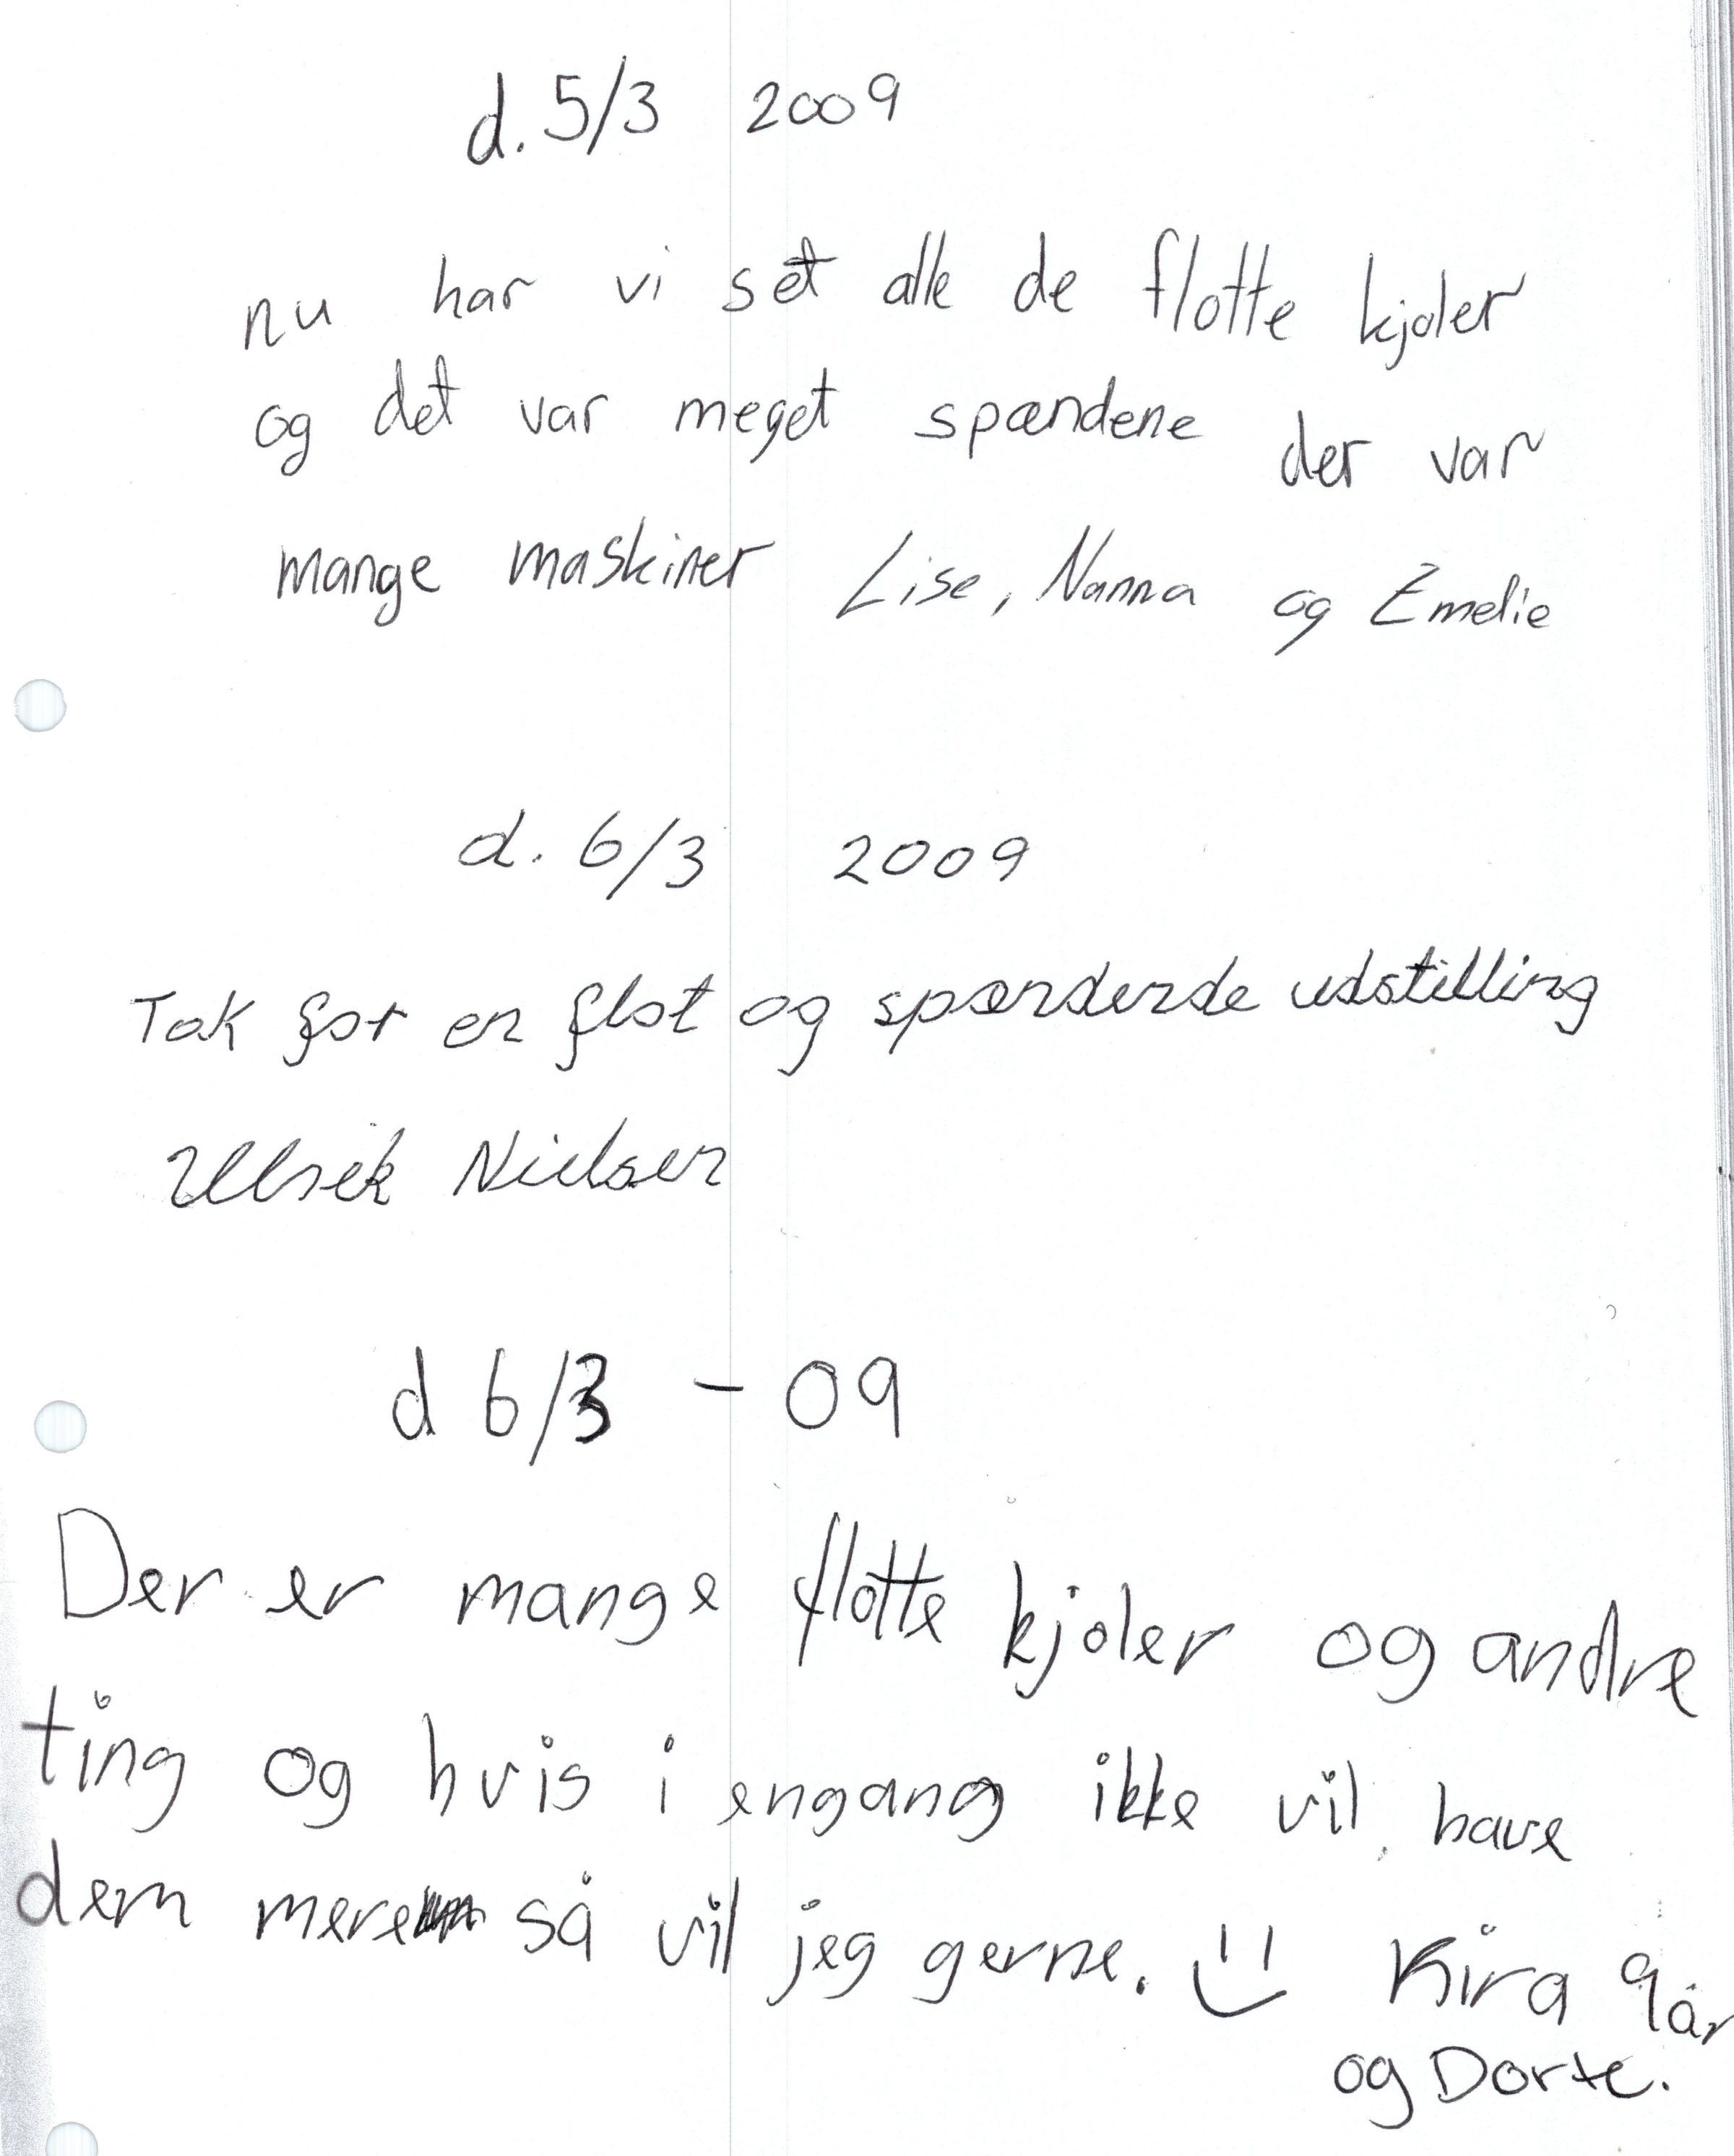 d. 5/3 2009
nu har vi set alle de flotte kjoler
og det var meget spændene der var
mange maskiner Lise, Nanna og Emelie
d. 6/3 2009
Tak for en flot og spændende udstilling
Nielsen
d 6/3 - 09
Der er mange flotte kjoler og andre
ting og hvis i engang ikke vil have
dem mere så vil jeg gerne. Kira 9 år
og Dorte.